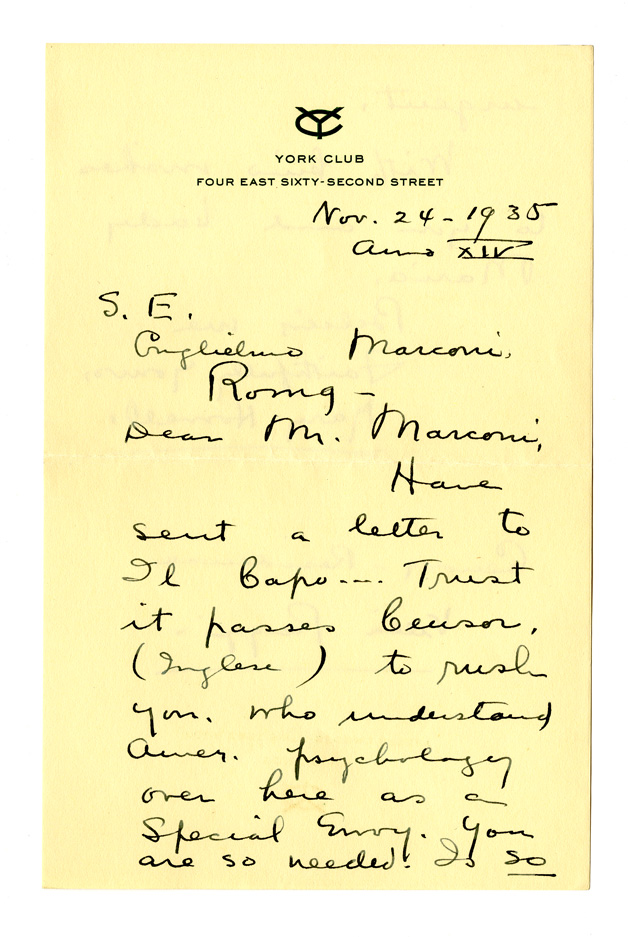 YC
YORK CLUB
FOUR EAST SIXTY-SECOND STREET
Nov. 24 - 1935
Anno XIV
S. E.
Guglielmo Marconi,
Roma -
Dear Mr. Marconi,
Have
sent a letter to
Il Capo---. Trust
it passes Censor,
(Inglese) to rush
you, who understand
Amer. psychology
over here as a
Special Envoy. You
are so needed! Is so